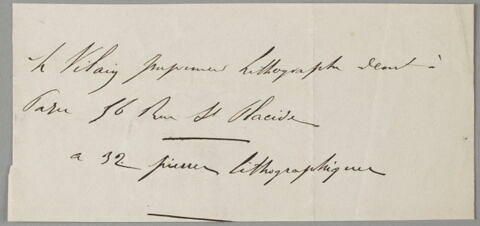 Mr Vilain Imprimeur lithographe demt à
Paris 56 Rue St Placide
a 32 pierres lithographiques